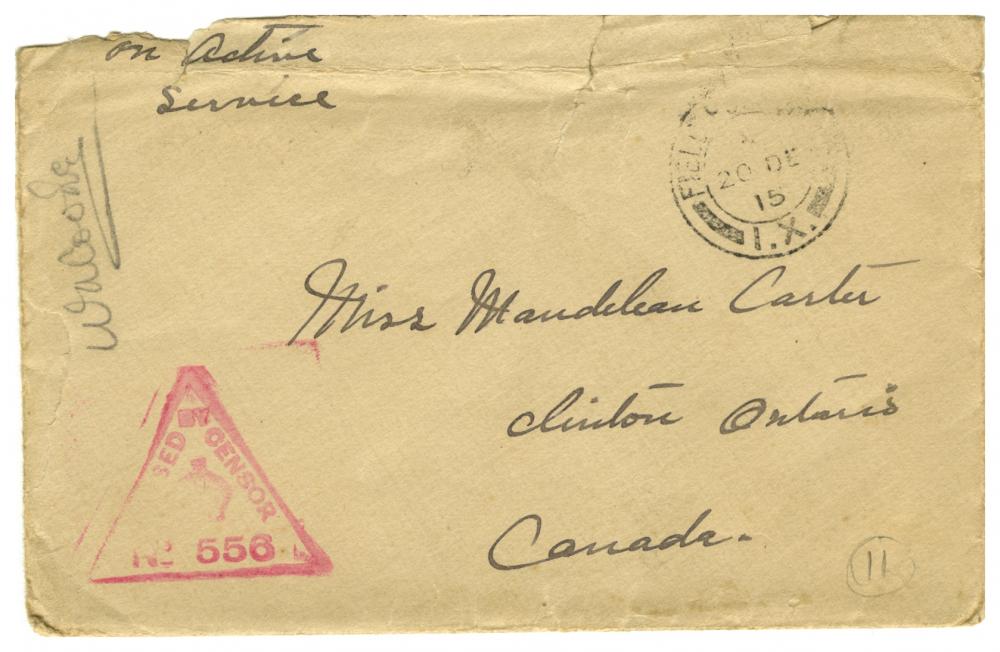 on Active
Service
FIELD
20 DE
15
I.X.
Miss Mandelean Carter
Clinton Ontario
Canada.
SED BY CENSOR
No 556
11